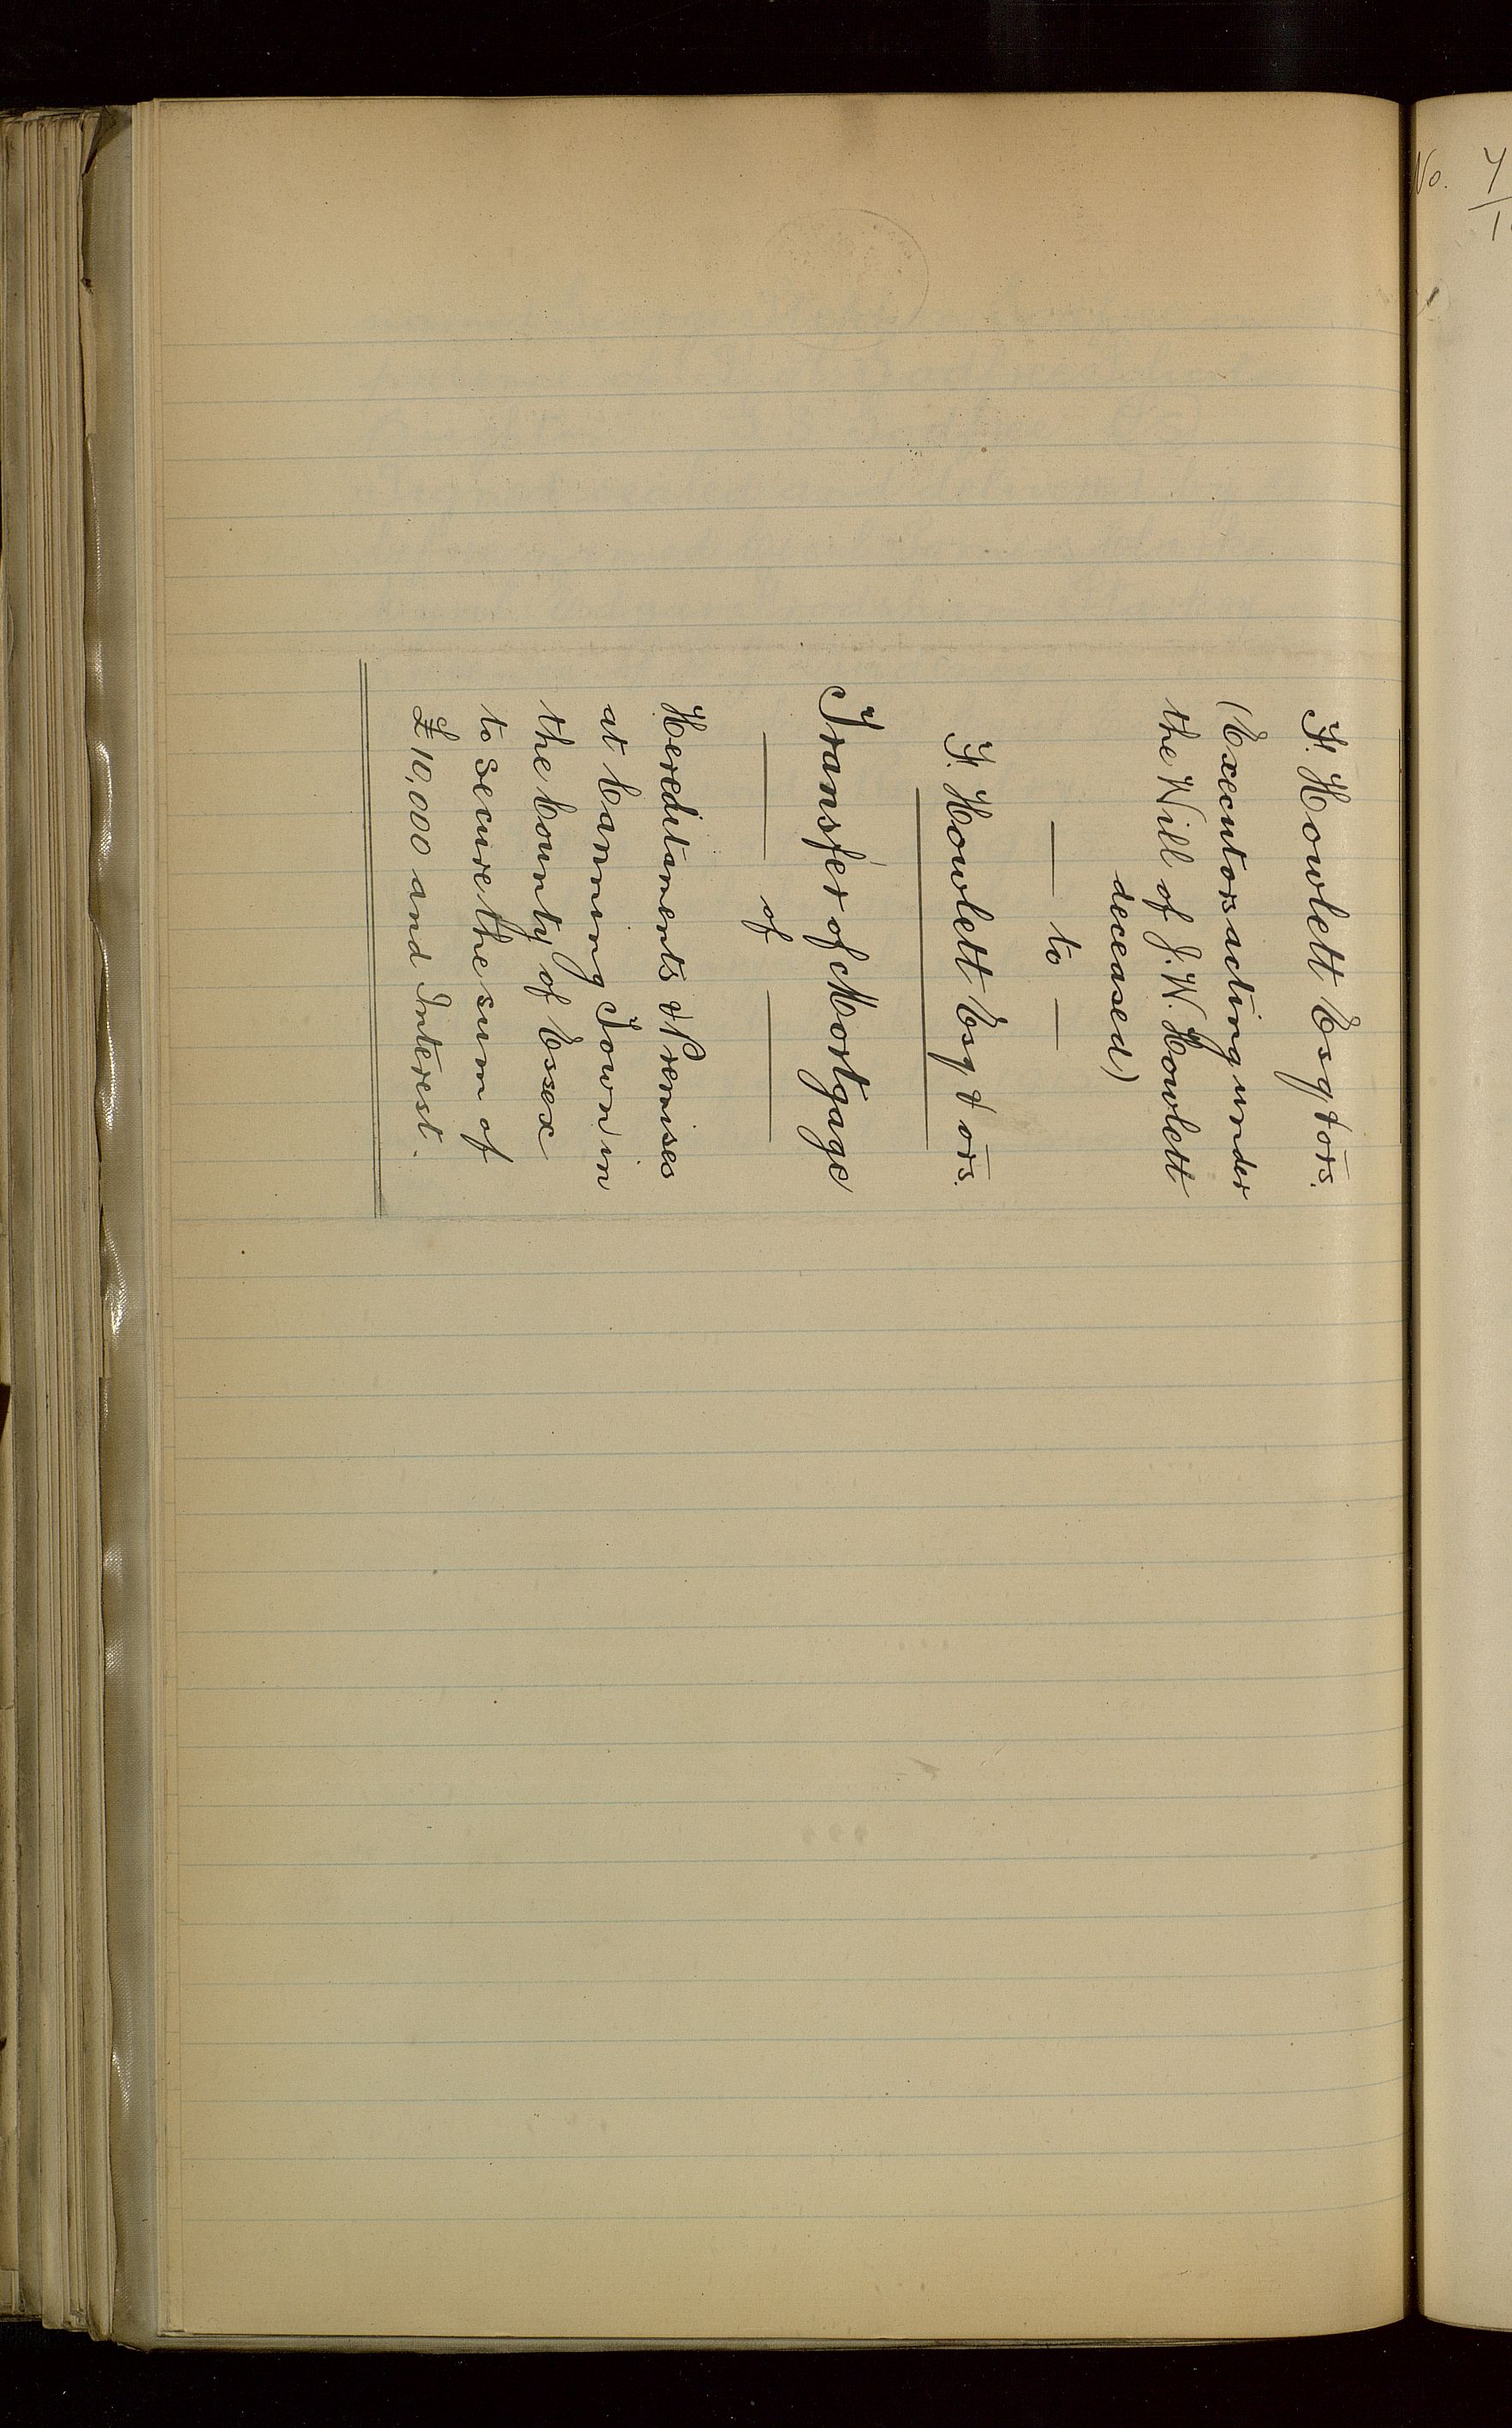 F. Howlett Esq & ors.
(Executors acting under
the Will of J. W. Howlett
deceased)
— to —
F. Howlett Esq & ors.
Transfer of Mortgage
— of —
Hereditaments & Premises
at Canning Town in
the County of Essex
to secure the sum of
£10,000 and Interest.
No.